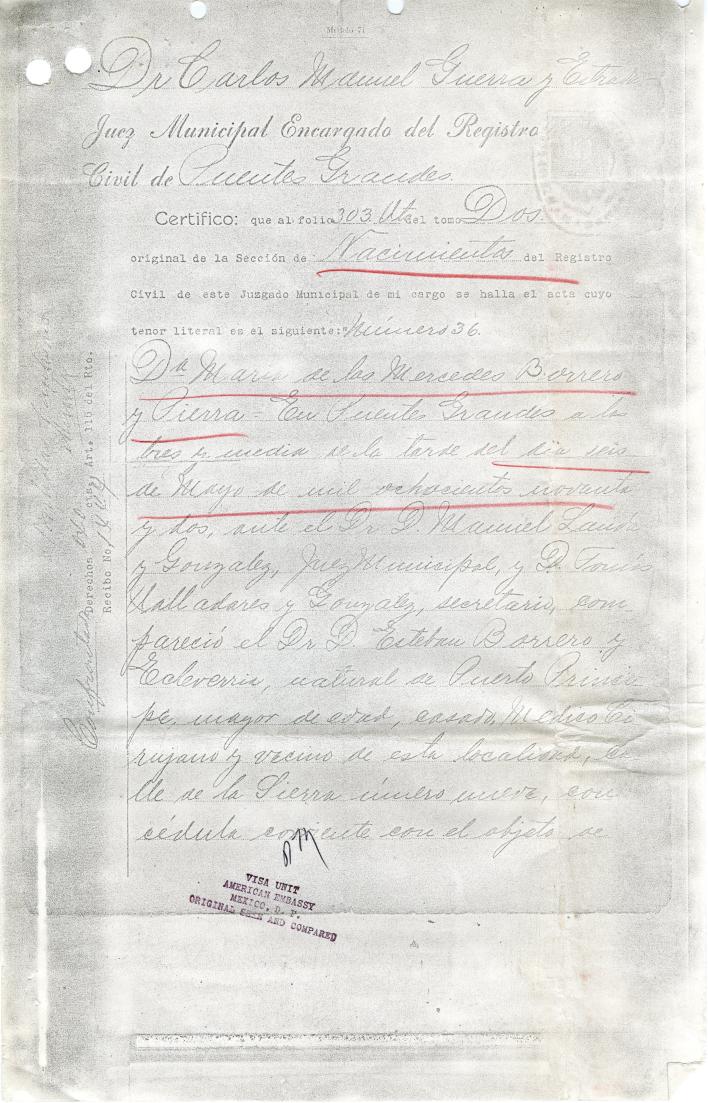 Modelo 71
Dr Carlos Manuel Guerra y Estrada
Juez Municipal Encargado del Registro
Civil de Puentes Grandes.
Certifico: que al folio 303 Vto del tomo Dos.
original de la Sección de Nacimientos del Registro
Civil de este Juzgado Municipal de mi cargo se halla el acta cuyo
tenor literal es el siguiente:"Número 36.
Da Maria de las Mercedes Borrero
y Pierra = En Puentes Grandes a las
tres y media de la tarde del dia seis
de Mayo de mil ochocientos noventa
y dos, ante el Dr D. Manuel
y Gonzalez, Juez Municipal, y D. Tomás
Valladares y Gonzalez, secretario, com-
pareció el Dr D. Esteban Borrero y
Echeverria, natural de Puerto Princi-
pe, mayor de edad, casado, Medico Ci-
rujano y vecino de esta localidad, ca-
lle de la Sierra número nueve, con
cédula corriente con el objeto de
Derechos Art. 116 del Rto.
Recibo No.
VISA UNIT
AMERICAN EMBASSY
MEXICO, D. F.
ORIGINAL SEEN AND COMPARED